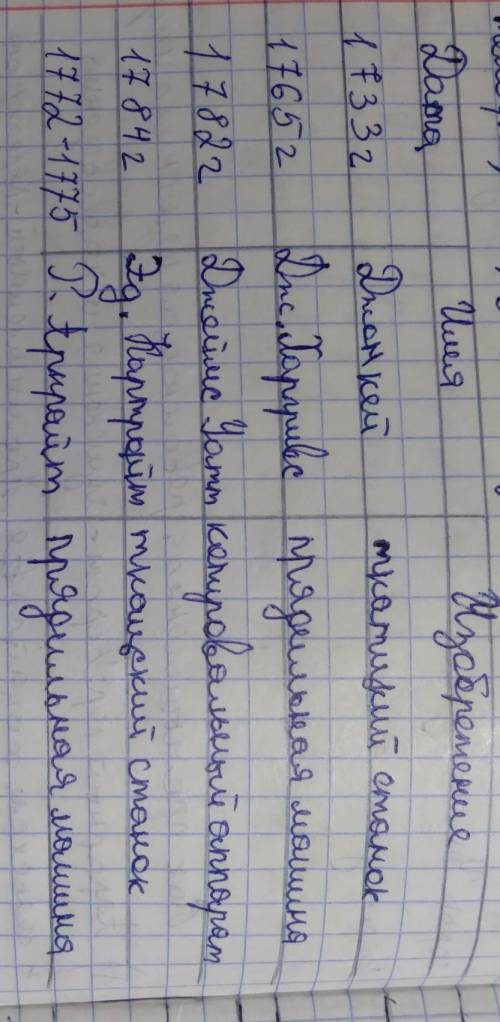 Дата Имя Изобретение
1733г Джон Кей ткатцкий станок
1765г Дж. Харгривс прядельная машина
1782г Джеймс Уатт копировальный аппарат
1784г Эд. Картрайт ткацский станок
1772-1775 Р. Аркрайт прядильная машина